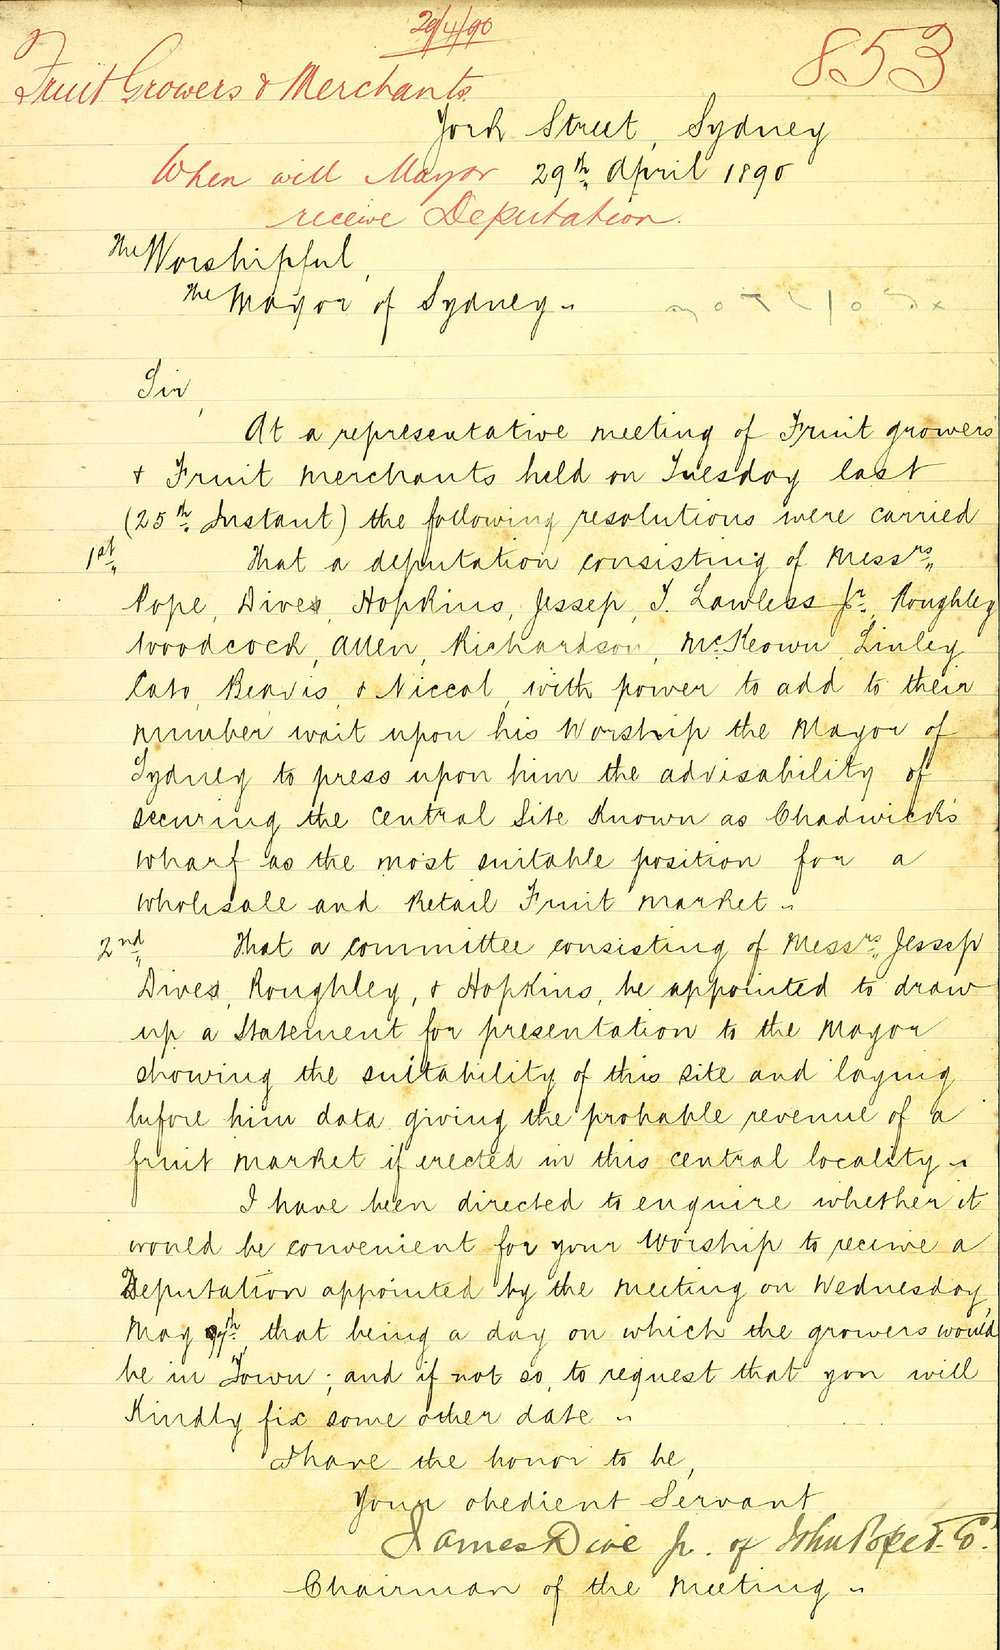 29/4/90
853
Fruit Growers & Merchants
York Street, Sydney
When will Mayor
29th April 1890
receive Deputation.
The Worshipful,
The Mayor of Sydney
Sir,
At a representative meeting of Fruit growers
& Fruit merchants held on Tuesday last
(25th Instant) the following resolutions were carried
1st That a deputation consisting of Messrs
Pope, Dives, Hopkins, Jessep, T. Lawless Jr, Roughley
Woodcock, Allen, Richardson, McKeown, Linley
Cato, Beavis, & Niccol, with power to add to their
number wait upon his Worship the Mayor of
Sydney to press upon him the advisability of
securing the central Site Known as Chadwick's
wharf as the most suitable position for a
wholesale and Retail Fruit market
2nd That a committee consisting of Messrs Jessep
Dives, Roughley, & Hopkins, be appointed to draw
up a Statement for presentation to the Mayor
showing the suitability of this site and laying
before him data giving the probable revenue of a
fruit market if erected in this central locality
I have been directed to enquire whether it
would be convenient for your Worship to receive a
Deputation appointed by the meeting on Wednesday,
May 7th, that being a day on which the growers would
be in Town; and if not so, to request that you will
Kindly fix some other date
I have the honor to be,
Your obedient Servant
James Dive Jr. of John Pope & Co.
Chairman of the Meeting